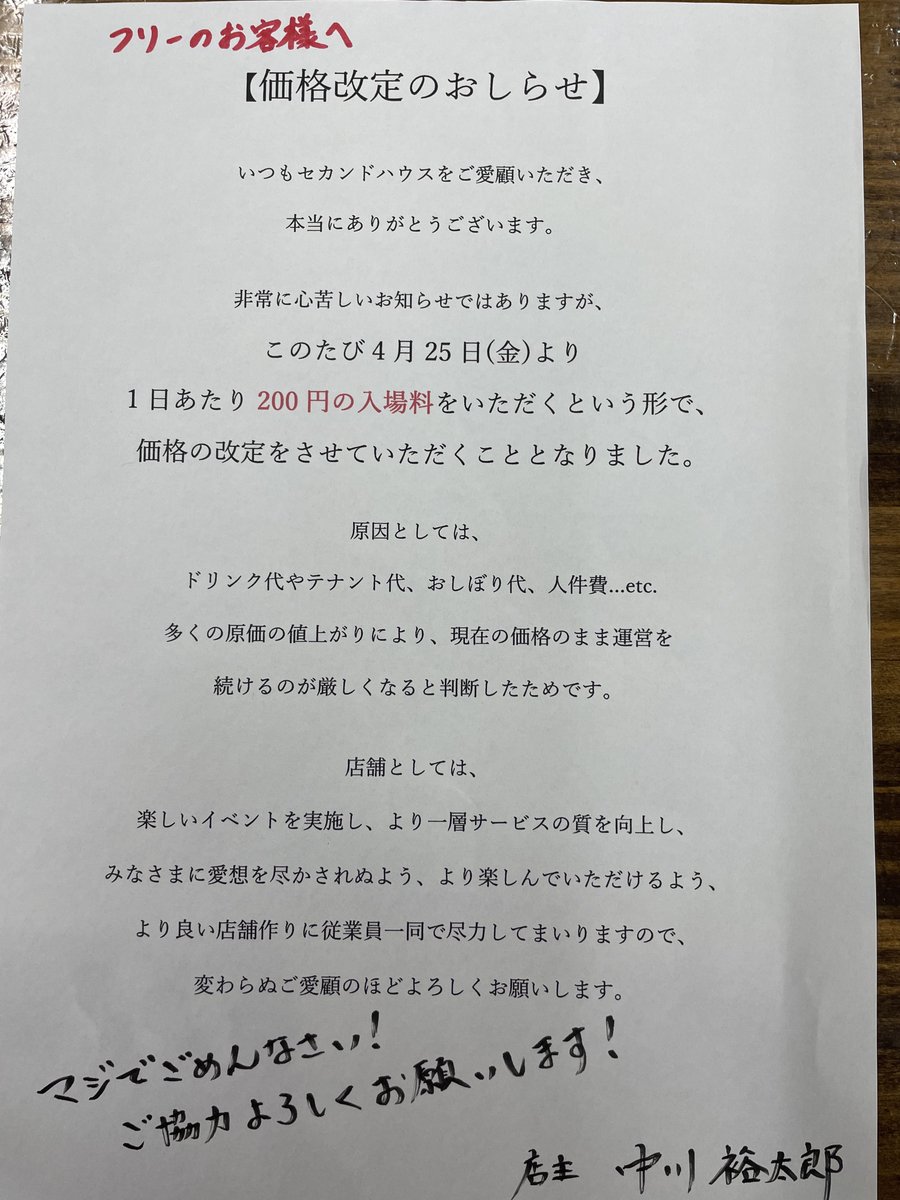 フリーのお客様へ
【価格改定のおしらせ】
いつもセカンドハウスをご愛顧いただき、
本当にありがとうございます。
非常に心苦しいお知らせではありますが、
このたび4月25日(金)より
1日あたり200円の入場料をいただくという形で、
価格の改定をさせていただくこととなりました。
原因としては、
ドリンク代やテナント代、おしぼり代、人件費...etc.
多くの原価の値上がりにより、現在の価格のまま運営を
続けるのが厳しくなると判断したためです。
店舗としては、
楽しいイベントを実施し、より一層サービスの質を向上し、
みなさまに愛想を尽かされぬよう、より楽しんでいただけるよう、
より良い店舗作りに従業員一同で尽力してまいりますので、
変わらぬご愛顧のほどよろしくお願いします。
マジでごめんなさい!
ご協力よろしくお願いします!
店主 中川 裕太郎